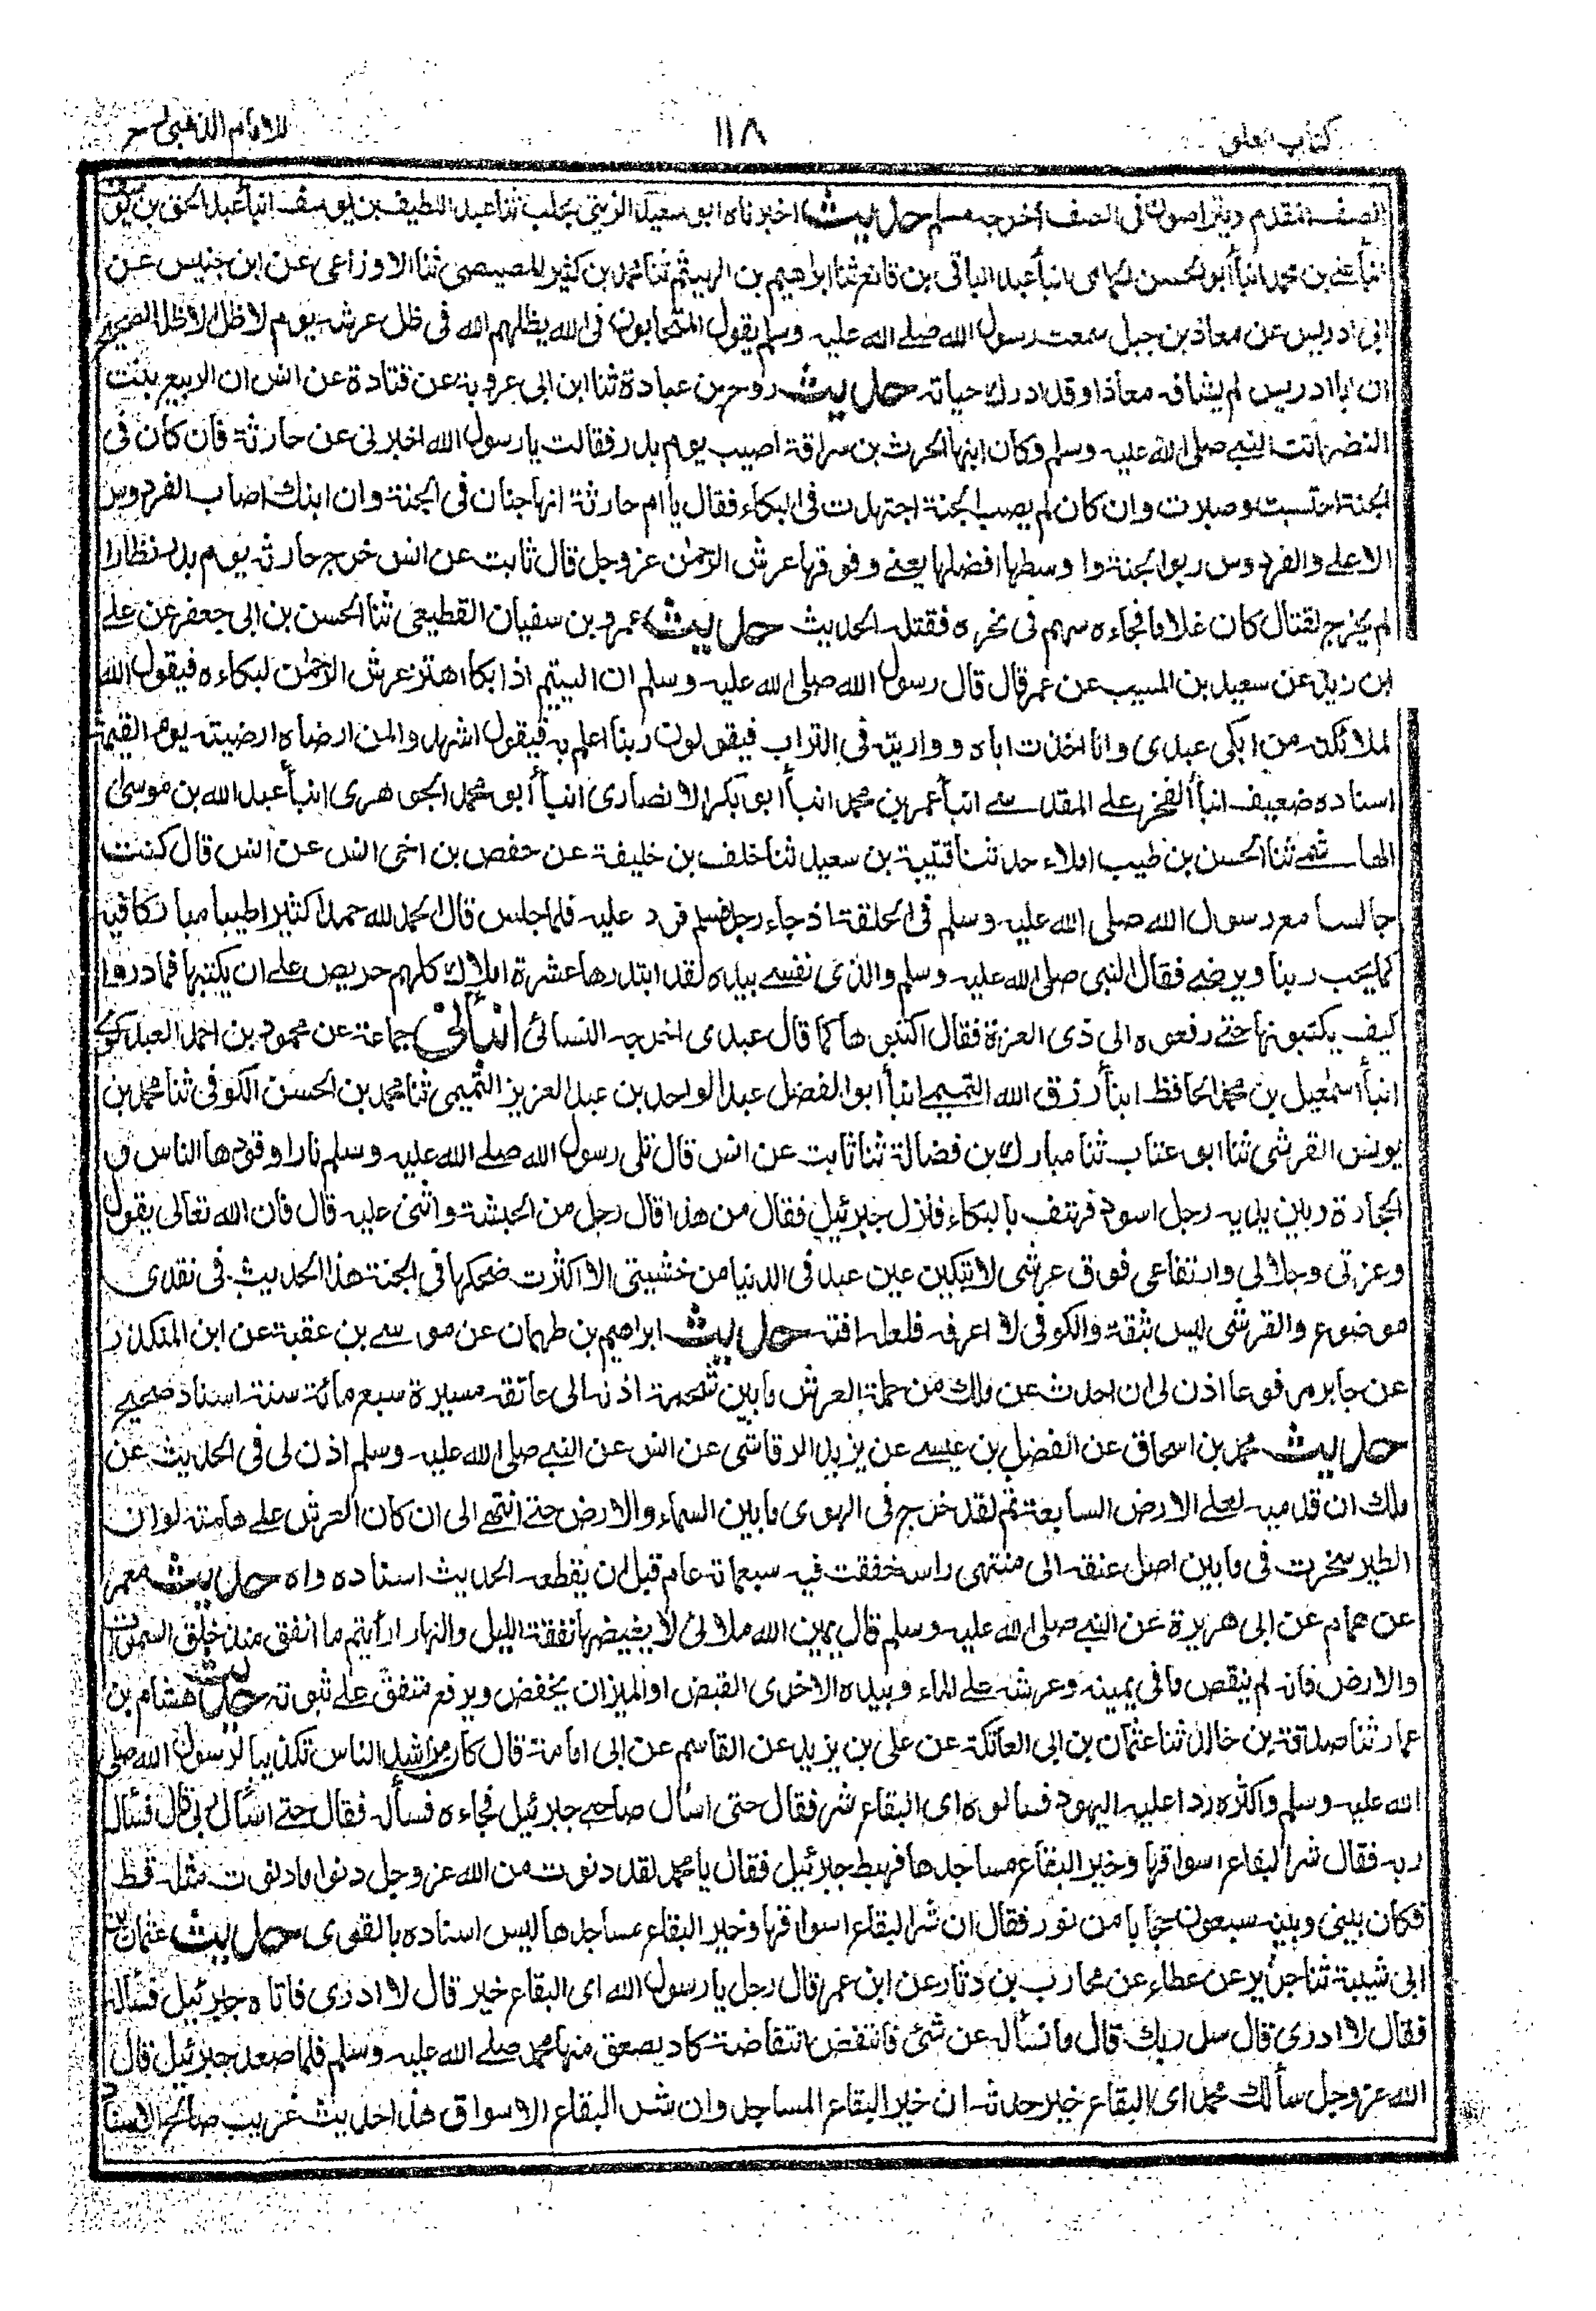 كتاب العلو
١١٨
للامام الذهبي رح
الصف المقدم ويتراصون في الصف أخرجه مسلم حديث اخبرناه ابو سعيد الزيني بحلب ثنا عبد اللطيف بن يوسف انبأ عبد الحق بن يوسف
انبأ علي بن محمد انبأ أبو الحسن الحمامي انبأ عبد الباقي بن قانع ثنا ابراهيم بن الهيثم ثنا محمد بن كثير المصيصي ثنا الاوزاعي عن ابن حنبس عن
ابي ادريس عن معاذ بن جبل سمعت رسول الله صلى الله عليه وسلم يقول المتحابون في الله يظلهم الله في ظل عرشه يوم لا ظل الا ظله الصحيح
ان ابا ادريس لم يشافه معاذا وقد ادرك حياته حديث روح بن عبادة ثنا ابن ابي عروبة عن قتادة عن انس ان الربيع بنت
النضر اتت النبي صلى الله عليه وسلم وكان ابنها الحرث بن سراقة اصيب يوم بدر فقالت يا رسول الله اخبرني عن حارثة فان كان في
الجنة احتسبت وصبرت وان كان لم يصب الجنة اجتهدت في البكاء فقال يا ام حارثة انها جنان في الجنة وان ابنك اصاب الفردوس
الاعلى والفردوس ربوة الجنة واوسطها افضلها يعني وفوقها عرش الرحمٰن عز وجل قال ثابت عن انس خرج حارثة يوم بدر نظارا
لم يخرج لقتال كان غلاما فجاءه سهم في نحره فقتله الحديث حديث عمرو بن سفيان القطيعي ثنا الحسن بن ابي جعفر عن علي
ابن زيد عن سعيد بن المسيب عن عمر قال قال رسول الله صلى الله عليه وسلم ان اليتيم اذا بكا اهتز عرش الرحمٰن لبكاءه فيقول الله
لملائكته من ابكى عبدي وانا اخذت اباه وواريته في التراب فيقولون ربنا اعلم به فيقول اشهدوا لمن ارضاه ارضيته يوم القيمة
اسناده ضعيف انبأ الفخر علي المقدسي انبأ عمر بن محمد انبأ ابو بكر الانصاري انبأ أبو محمد الجوهري انبأ عبد الله بن موسى
الهاشمي ثنا الحسن بن طيب املاء حدثنا قتيبة بن سعيد ثنا خلف بن خليفة عن حفص بن اخى انس عن انس قال كنت
جالسا مع رسول الله صلى الله عليه وسلم في الحلقة اذ جاء رجل فسلم فرد عليه فلما جلس قال الحمد لله حمدا كثيرا طيبا مباركا فيه
كما يحب ربنا ويرضى فقال النبي صلى الله عليه وسلم والذي نفسي بيده لقد ابتدرها عشرة املاك كلهم حريص على ان يكتبها فما دروا
كيف يكتبونها حتى رفعوه الى ذي العزة فقال اكتبوها كما قال عبدي اخرجه النسائي انبأني جماعة عن محمود بن احمد العبدكوي
انبأ اسمٰعيل بن محمد الحافظ ابنأ رزق الله التميمي انبأ ابو الفضل عبد الواحد بن عبد العزيز التميمي ثنا محمد بن الحسن الكوفي ثنا محمد بن
يونس القرشي ثنا ابو عتاب ثنا مبارك بن فضالة ثنا ثابت عن انس قال تلى رسول الله صلى الله عليه وسلم نارا وقودها الناس و
الحجارة وبين يديه رجل اسود فهتف بالبكاء فنزل جبرئيل فقال من هذا قال رجل من الحبشة واثنى عليه قال فان الله تعالى يقول
وعزتي وجلالي وارتفاعي فوق عرشي لا تبكين عين عبد في الدنيا من خشيتي الا اكثرت ضحكها في الجنة هذا الحديث في نقدي
موضوع والقرشي ليس بثقة والكوفي لا اعرفه فلعله افته حديث ابراهيم بن طهمان عن موسى بن عقبة عن ابن المنكدر
عن جابر مرفوعا اذن لي ان احدث عن ملك من حملة العرش ما بين شحمة اذنه الى عاتقه مسيرة سبع مائة سنة اسناده صحيح
حديث محمد بن اسحاق عن الفضل بن عيسى عن يزيد الرقاشي عن انس عن النبي صلى الله عليه وسلم اذن لي في الحديث عن
ملك ان قدميه لعلى الارض السابعة ثم لقد خرج في الهوى ما بين السماء والارض حتى انتهى الى ان كان العرش على هامته لو ان
الطير سخرت في ما بين اصل عنقه الى منتهى راسه خفقت فيه سبعمائة عام قبل ان يقطعه الحديث اسناده واه حديث معمر
عن همام عن ابي هريرة عن النبي صلى الله عليه وسلم قال يمين الله ملاى لا يغيضها نفقة الليل والنهار ارأيتم ما انفق منذ خلق السموات
والارض فانه لم ينقص ما في يمينه وعرشه على الماء وبيده الاخرى القبض او الميزان يخفض ويرفع متفق على ثبوته حديث هشام بن
عمار ثنا صدقة بن خالد ثنا عثمان بن ابي العاتكة عن علي بن يزيد عن القاسم عن ابي امامة قال كان من اشد الناس تكذيبا لرسول الله صلى
الله عليه وسلم واكثره ردا عليه اليهود فسالوه اى البقاع شر فقال حتى اسأل صاحبي جبرئيل فجاءه فسأله فقال حتى اسأل ربي قال فسأل
ربه فقال شر البقاع اسواقها وخير البقاع مساجدها فهبط جبرئيل فقال يا محمد لقد دنوت من الله عز وجل دنوا ما دنوت مثله قط
فكان بيني وبينه سبعون حجابا من نور فقال ان شر البقاع اسواقها وخير البقاع مساجدها ليس اسناده بالقوى حديث عثمان بن
ابي شيبة ثنا جرير عن عطاء عن محارب بن دثار عن ابن عمر قال رجل يا رسول الله اى البقاع خير قال لا ادري فاتاه جبرئيل فسأله
فقال لا ادري قال سل ربك قال ما نسأله عن شئ فانتفض انتفاضة كاد يصعق منها محمد صلى الله عليه وسلم فلما صعد جبرئيل قال
الله عز وجل سألك محمد اى البقاع خير حدثه ان خير البقاع المساجد وان شر البقاع الاسواق هذا حديث غريب صالح الاسناد